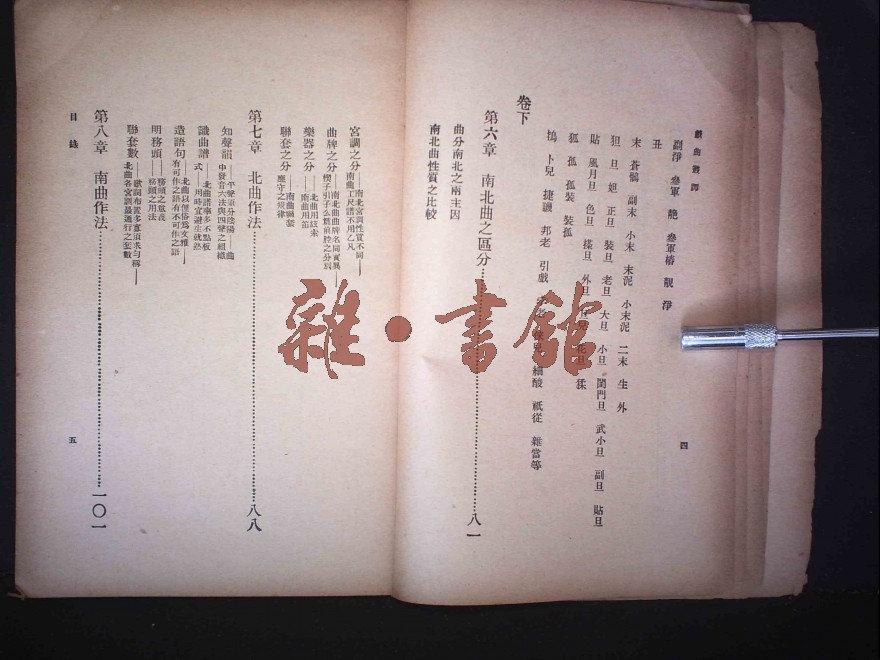 戲曲叢譚
四
副淨 參軍 艴 參軍樁 靚 淨
丑
末 蒼鶻 副末 小末 末泥 小末泥 二末 生 外
狚 旦 妲 正旦 裝旦 老旦 大旦 小旦 閨門旦 武小旦 副旦 貼旦
貼 風月旦 色旦 搽旦 外旦 旦兒 花旦 猱
狐 孤 孤裝 裝孤
鴇 卜兒 捷譏 邦老 引戲 細酸 祇從 雜當等
卷下
第六章 南北曲之區分……八一
曲分南北之兩主因
南北曲性質之比較
宮調之分——南北宮調性質不同——南曲工尺譜不用乙凡
曲牌之分——南北曲曲牌名同實異——楔子引子本篇前腔之分別
樂器之分——北曲用絃索——南曲用笛
聯套之分——南曲聯套應守之規律
第七章 北曲作法……八八
知聲韻——平聲須分陰陽——曲中發音六法與四聲之組織
識曲譜——北曲譜率多不點板式——用時宜避生就熟
造語句——北曲以俚俗為文雅——有可作之語有不可作之語
明務頭——務頭之意義——務頭之用法
聯套數——歌詞布置多寡須求勻稱——北曲各宮調最通行之套數
第八章 南曲作法……一〇一
目錄
五
雜·書館